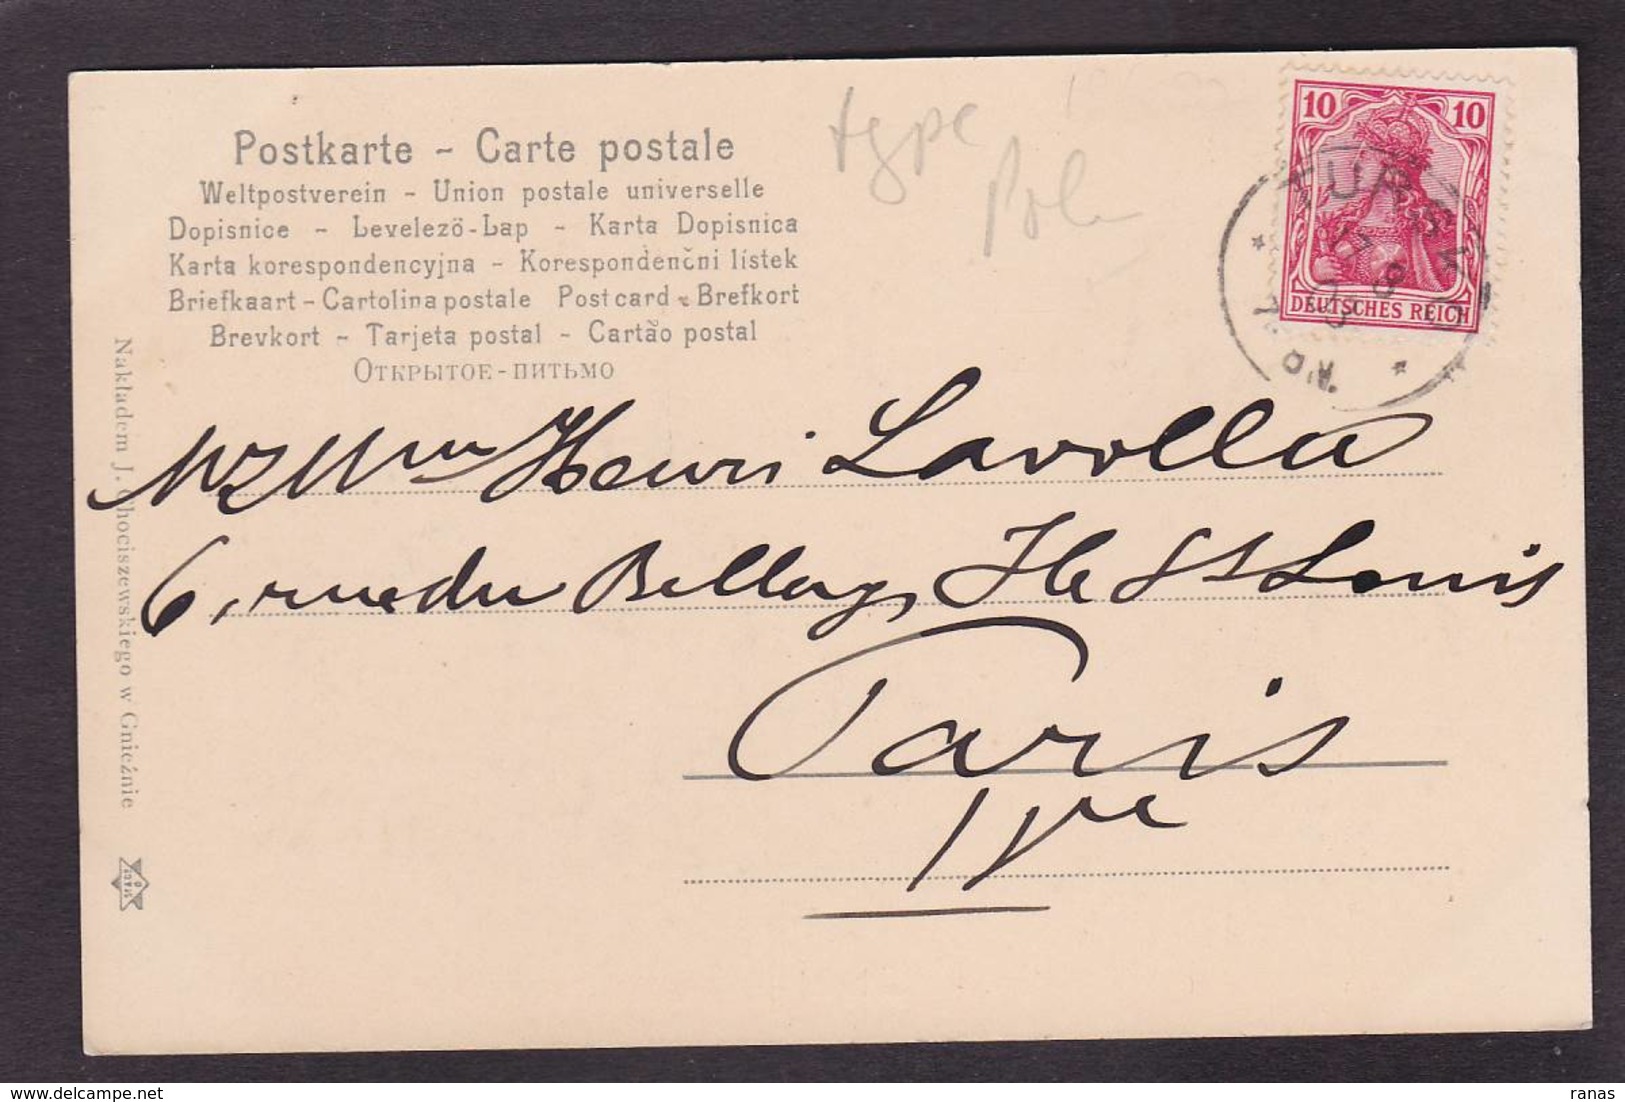 Postkarte - Carte postale
Weltpostverein - Union postale universelle
Dopisnice - Levelezö-Lap - Karta Dopisnica
Karta korespondencyjna - Korespondenční lístek
Briefkaart - Cartolina postale Postcard - Brefkort
Brevkort - Tarjeta postal - Cartão postal
Открытое-питьмо
type
Pol
10 10
DEUTSCHES REICH
TURSKO
Henri Lavolla
6, rue du Bellay, Ile St Louis
Paris
IVe
Nakładem J. Chociszewskiego w Gnieźnie
ranas